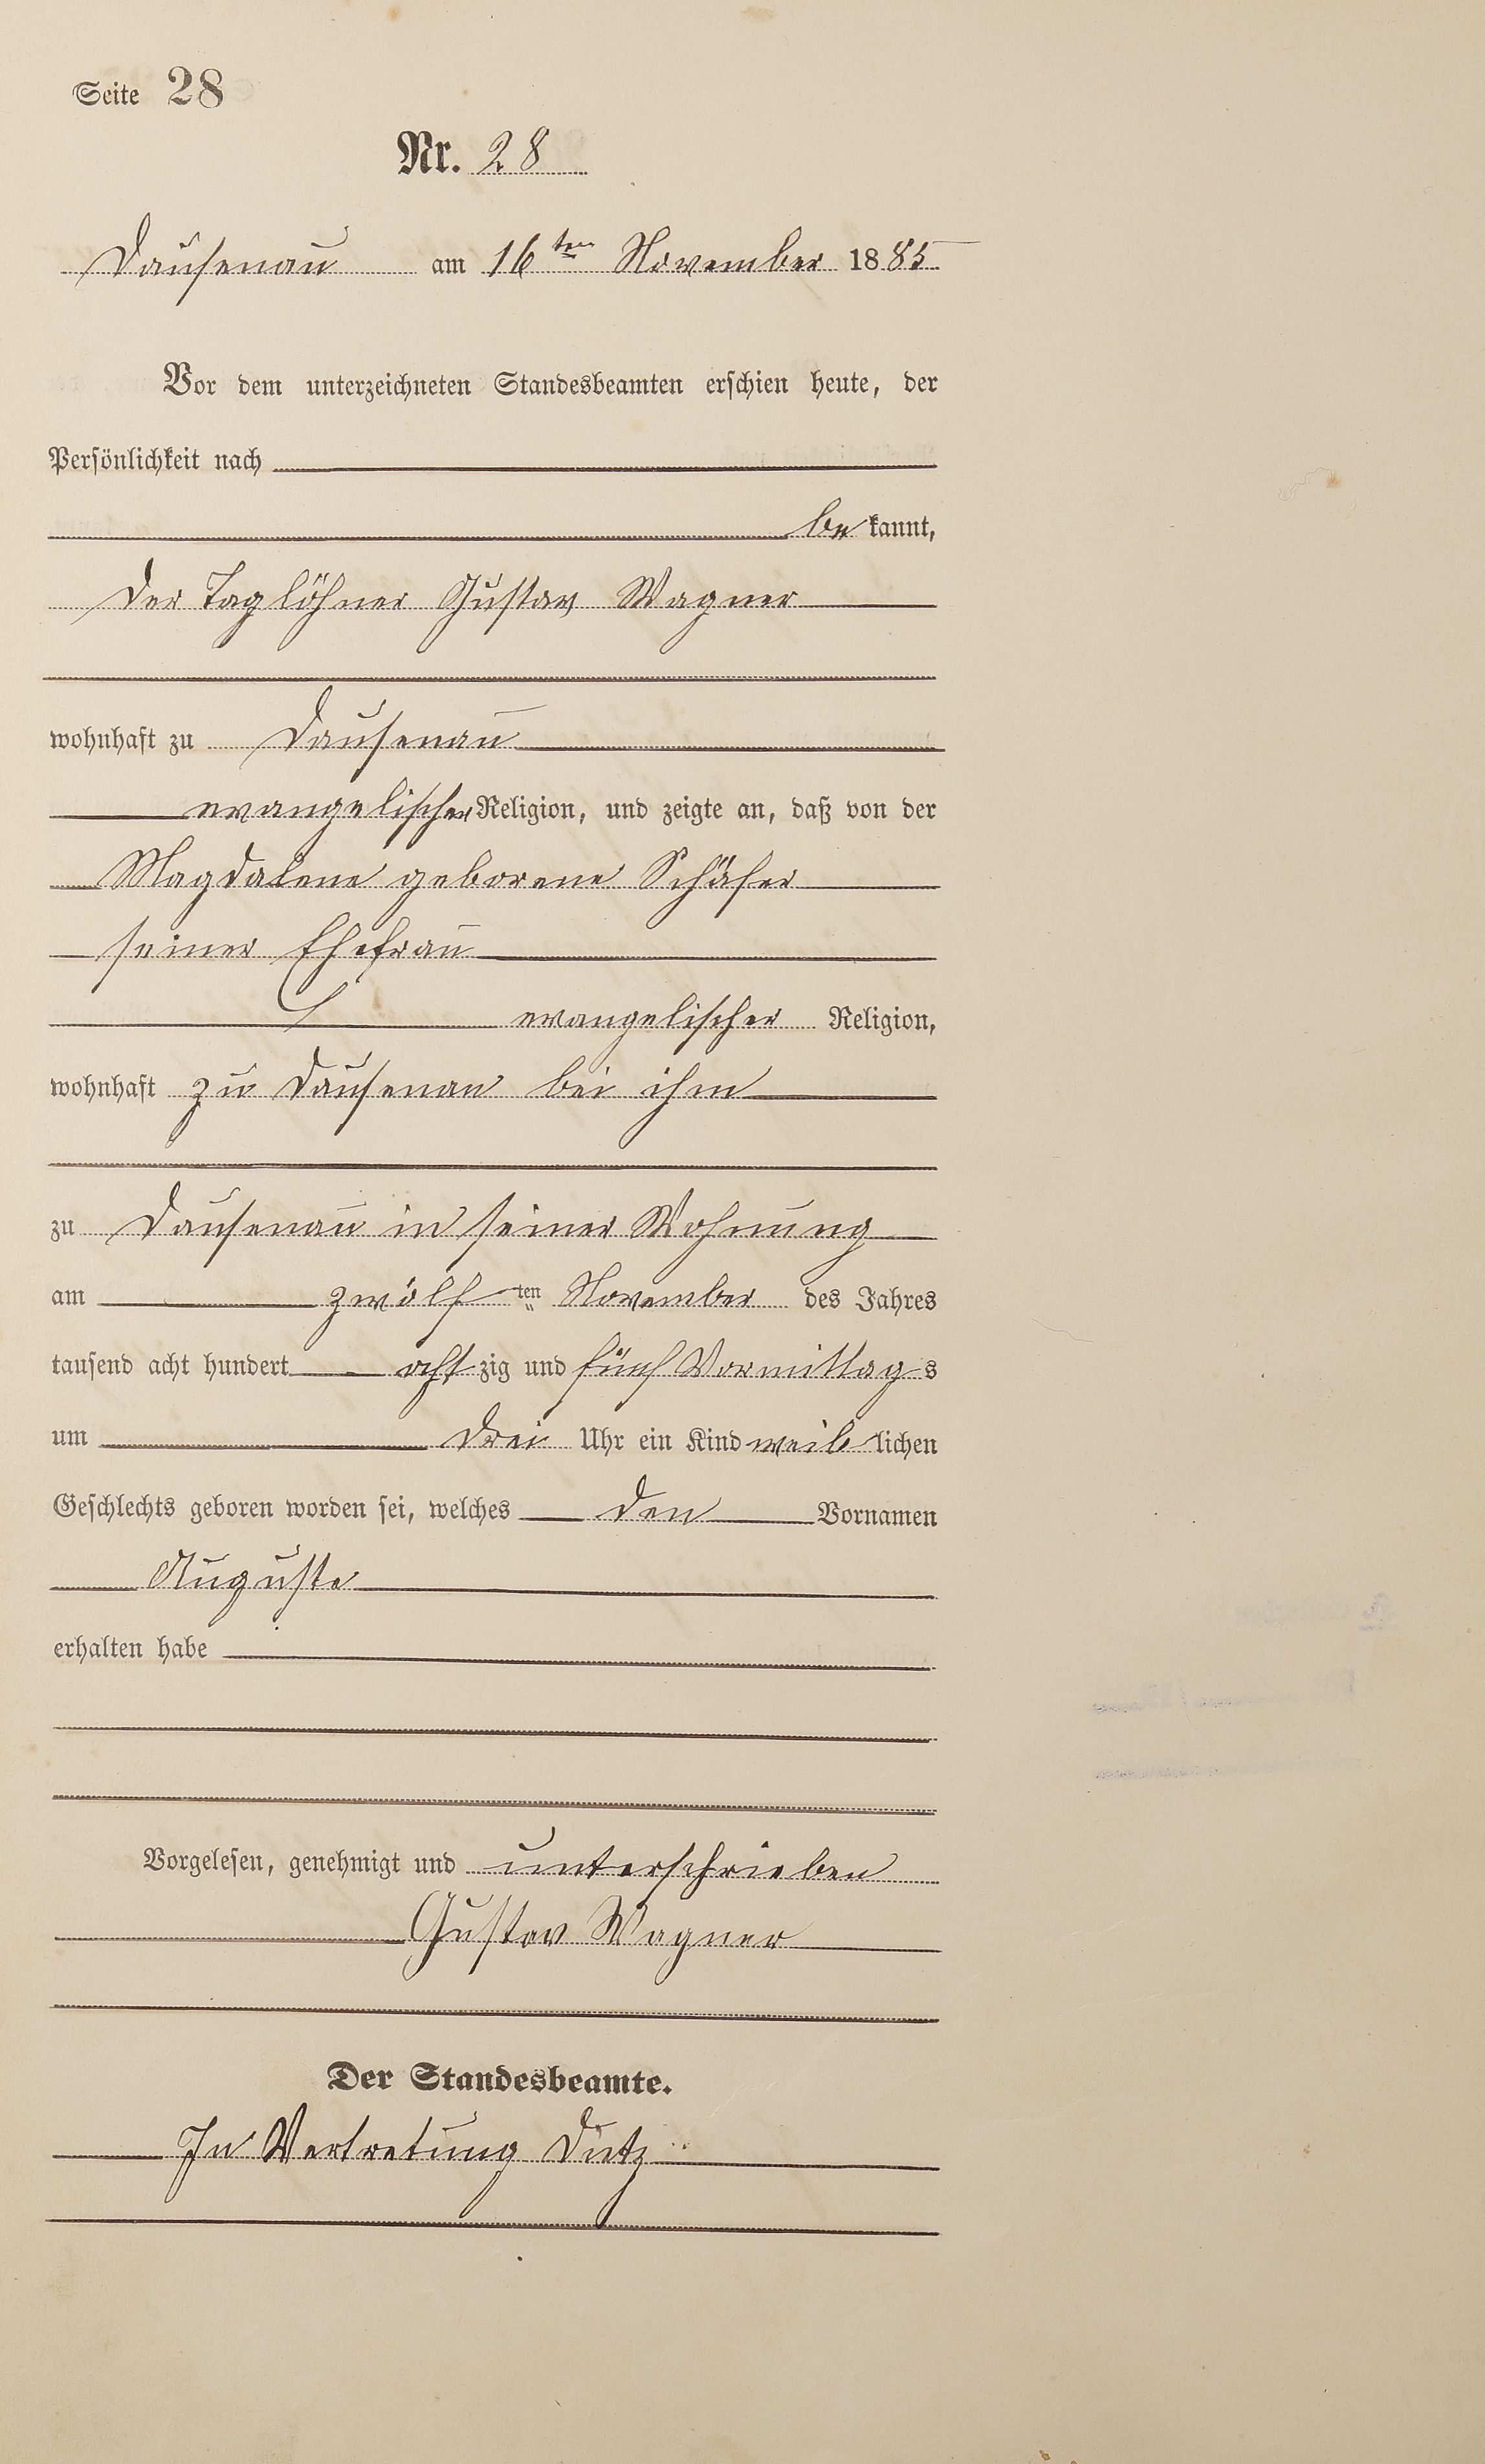 Seite 28
Nr. 28
Dausenau am 16ten November 1885
Vor dem unterzeichneten Standesbeamten erschien heute, der
Persönlichkeit nach
be kannt,
der Taglöhner Gustav Wagner
wohnhaft zu Dausenau
evangelischer Religion, und zeigte an, daß von der
Magdalene geborene Schäfer
seiner Ehefrau
evangelischer Religion,
wohnhaft zu Dausenau bei ihm
zu Dausenau in seiner Wohnung
am zwölf ten November des Jahres
tausend acht hundert acht zig und fünf Vormittag s
um drei Uhr ein Kind weib lichen
Geschlechts geboren worden sei, welches den Vornamen
Auguste
erhalten habe
Vorgelesen, genehmigt und unterschrieben
Gustav Wagner
Der Standesbeamte.
In Vertretung